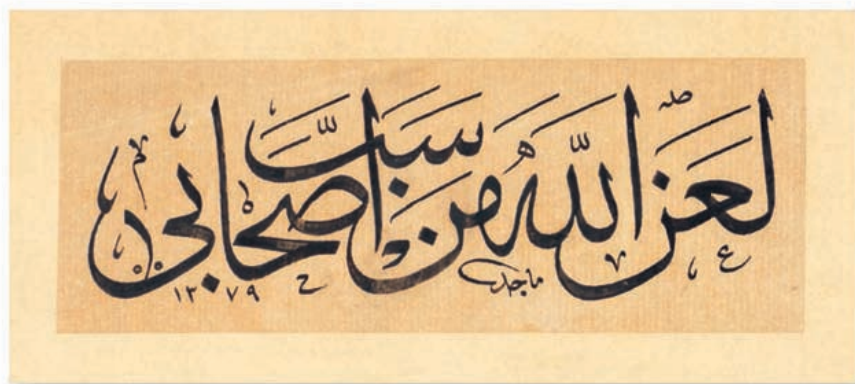 لَعَنَ اللّٰهُ مَنْ سَبَّ اَصْحَابِي
ماجد ١٣٠٧٩